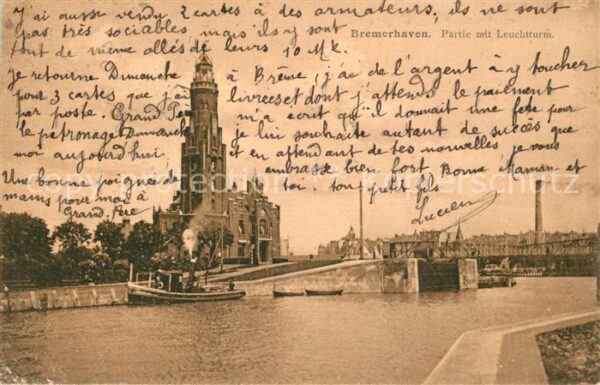 j'ai aussi vendu 2 cartes à des armateurs, ils ne sont
pas très sociables mais ils y sont
tout de même allés de leurs 10 Mk.
Bremerhaven. Partie mit Leuchtturm.
Je retourne Dimanche à Brême, j'ai de l'argent à y toucher
pour 3 cartes que j'ai livrées et dont j'attends le paiement
par poste. Grand Père m'a écrit qu'il donnait une fête pour
le patronage Dimanche je lui souhaite autant de succès que
moi aujourd'hui et en attendant de tes nouvelles je vous
embrasse bien fort Bonne Maman et
toi ton petit fils
Lucien
Une bonne poignée de
mains pour moi à
Grand Père
www.ansichtskarten-center.de